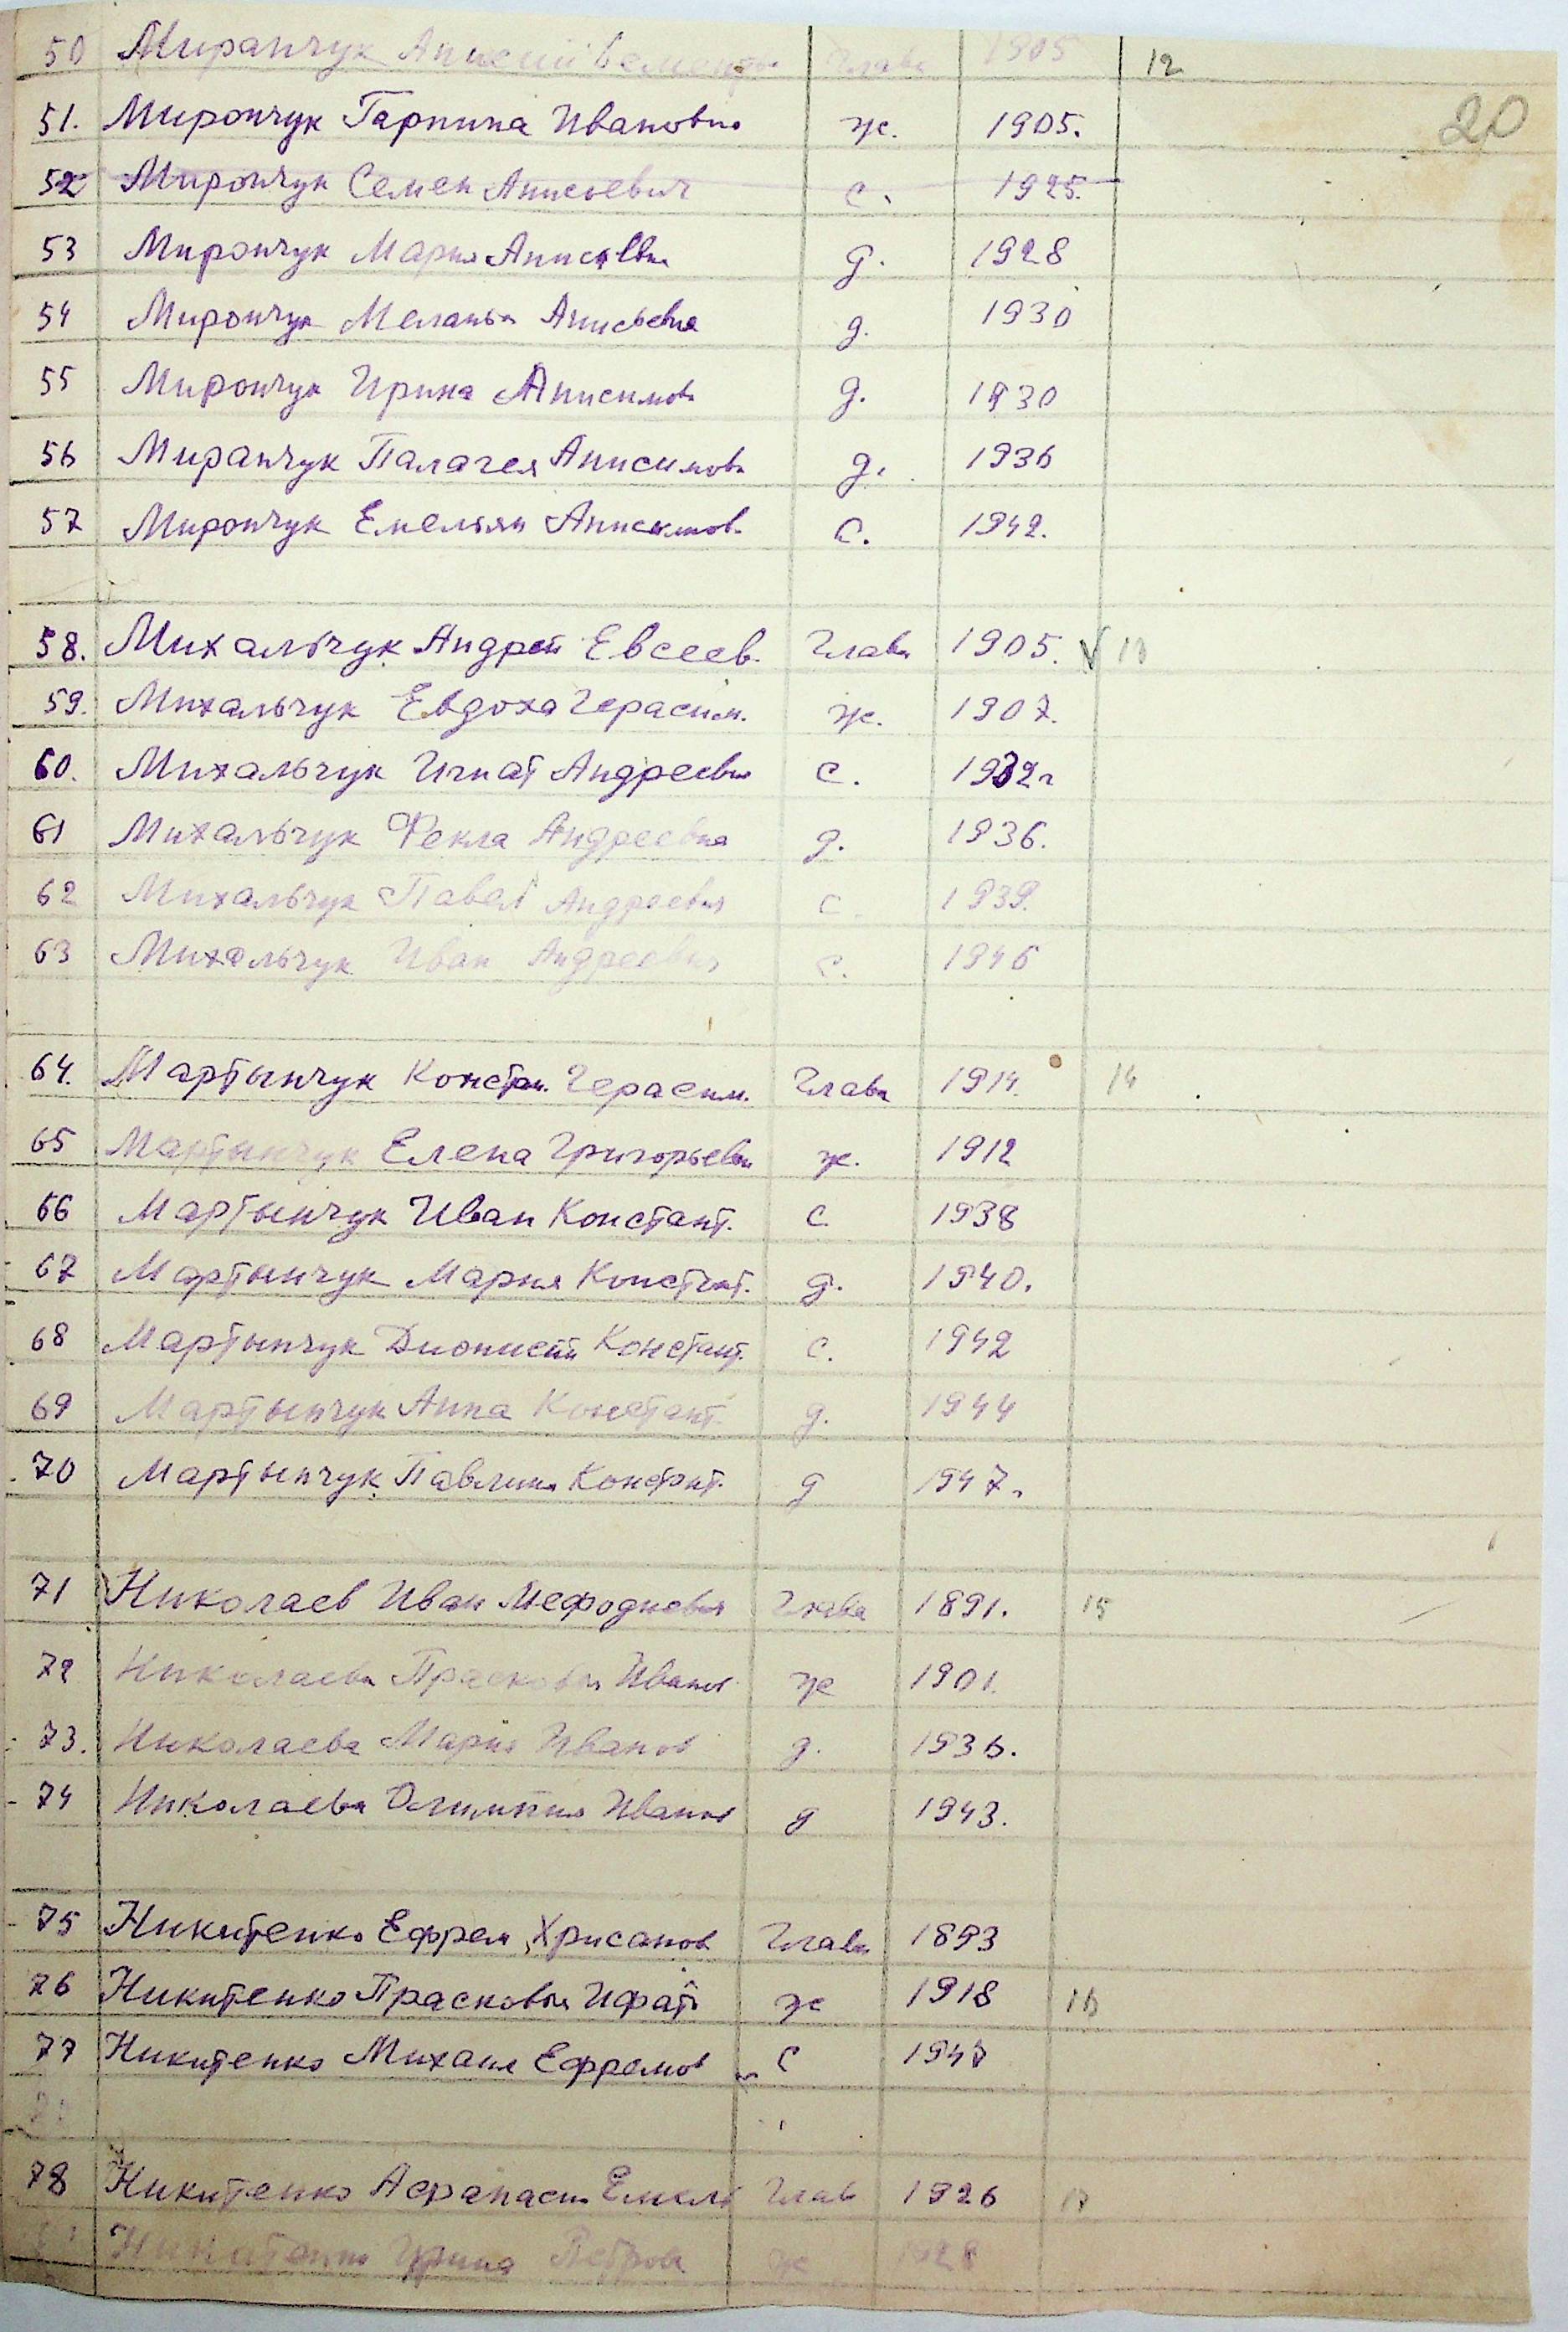 50 Миранчук Глава 1905 12
20
51. Мирончук Гарпина Ивановна ж. 1905.
52 Мирончук Семен Анисьевич с. 1925.
53 Мирончук Мария д. 1928
54 Мирончук Меланья Анисьевна д. 1930
55 Мирончук Ирина Анисимов д. 1930
56 Миранчук Палагея Анисимов д. 1936
57 Мирончук Емельян Анисимов. с. 1942.
58. Михальчук Андрей Евсеев. Глава 1905. 13
59. Михальчук Евдоха Герасим. ж. 1907.
60. Михальчук Игнат Андреевич с. 1932г
61 Михальчук Фекла Андреевна д. 1936.
62 Михальчук Павел Андреевич с. 1939.
63 Михальчук Иван Андреевич с. 1946
64. Мартынчук Констан. Герасим. Глава 1914. 14
65 Мартынчук Елена Григорьевн ж. 1912
66 Мартынчук Иван Констант. с. 1938
67 Мартынчук Мария Констант. д. 1940.
68 Мартынчук Дионисий Констант. с. 1942
69 Мартынчук Анна Констант. д. 1944
70 Мартынчук Павлина Констнт. д 1947.
71 Николаев Иван Мефодиевич Глава 1891. 15
72 Николаева Прасковья Иванов ж 1901.
73. Николаева Мария Иванов д. 1936.
74 Николаева Олимпия Иванов д 1943.
75 Никитенко Ефрем Хрисанов Глава 1893
76 Никитенко Прасковья ж 1918 16
77 Никитенко Михаил Ефремов с 1947
78 Никитенко Афанасий Емел Глав 1926 17
Никитенко Ирина Петров ж